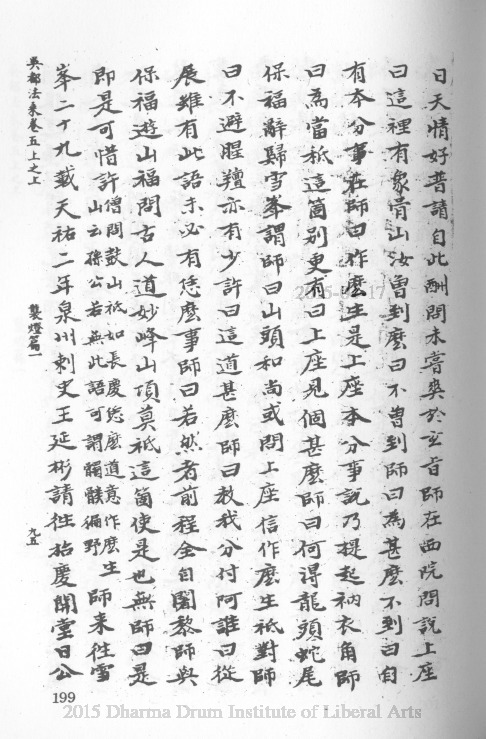 日天情好普請自此酬問未嘗爽於玄旨師在西院問說上座
曰這裡有象骨山汝曾到麼曰不曾到師曰為甚麼不到曰自
有本分事在師曰作麼生是上座本分事說乃提起衲衣角師
曰為當祇這箇別更有曰上座見個甚麼師曰何得龍頭蛇尾
保福辭歸雪峯謂師曰山頭和尚或問上座信作麼生祇對師
曰不避腥羶亦有少許曰信道甚麼師曰教我分付阿誰曰從
展雖有此語未必有恁麼事師曰若然者前程全自闍黎師與
保福遊山福問古人道妙峰山頂莫祇這箇便是也無師曰是
即是可惜許僧問鼓山祇如長慶恁麼道意作麼生
山云孫公若無此語可謂髑髏徧野師來往雪
峯二十九載天祐二年泉州刺史王延彬請住招慶開堂日公
吳都法乘卷五上之上
襲燈篇一
九五
199
2015 Dharma Drum Institute of Liberal Arts